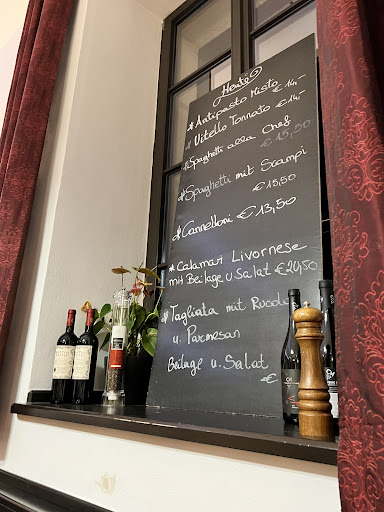 Heute
* Antipasto Misto €14,-
* Vitello Tonnato €14,-
* Spaghetti alla Chef
€15,50
* Spaghetti mit Scampi
€15,50
* Cannelloni €13,50
* Calamari Livornese
mit Beilage u Salat €20,50
* Tagliata mit Rucola
u. Parmesan
Beilage u. Salat
€